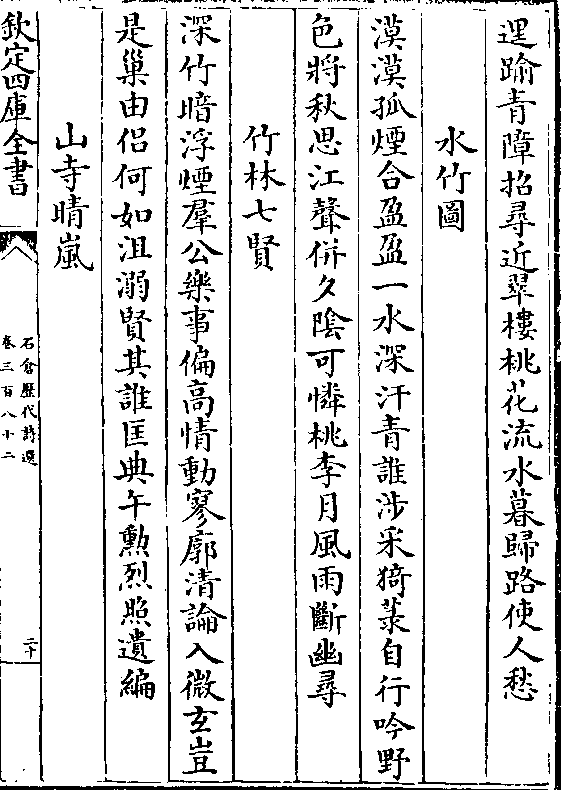 逞踰青障招尋近翠樓桃花流水暮歸路使人愁
水竹圖
漠漠孤煙合盈盈一水深汗青誰涉采猗菉自行吟野
色將秋思江聲併夕陰可憐桃李月風雨斷幽尋
竹林七賢
深竹暗浮煙羣公樂事偏高情動寥廓清論入微玄豈
是巢由侣何如沮溺賢其誰匡典午勲烈照遺編
山寺晴嵐
欽定四庫全書
石倉歷代詩選
卷三百八十二
二十